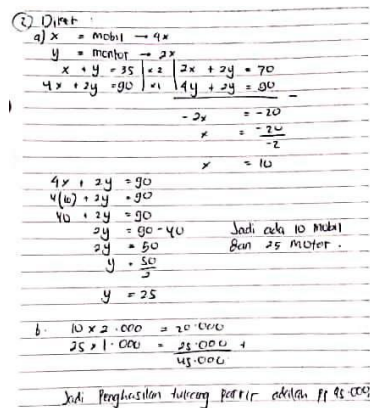 ② Diket :
a) x = mobil → 4x
y = montor → 2x
x + y = 35 | x 2 | 2x + 2y = 70
4x + 2y = 90 | x1 | 4y + 2y = 90 -
- 2x = - 20
x = - 20 / -2
x = 10
4x + 2y = 90
4(10) + 2y = 90
40 + 2y = 90
2y = 90 - 40 Jadi ada 10 mobil
2y = 50 dan 25 motor.
y = 50 / 2
y = 25
b. 10 x 2.000 = 20.000
25 x 1.000 = 25.000 +
45.000
Jadi Penghasilan tukang parkir adalah Rp 45.000